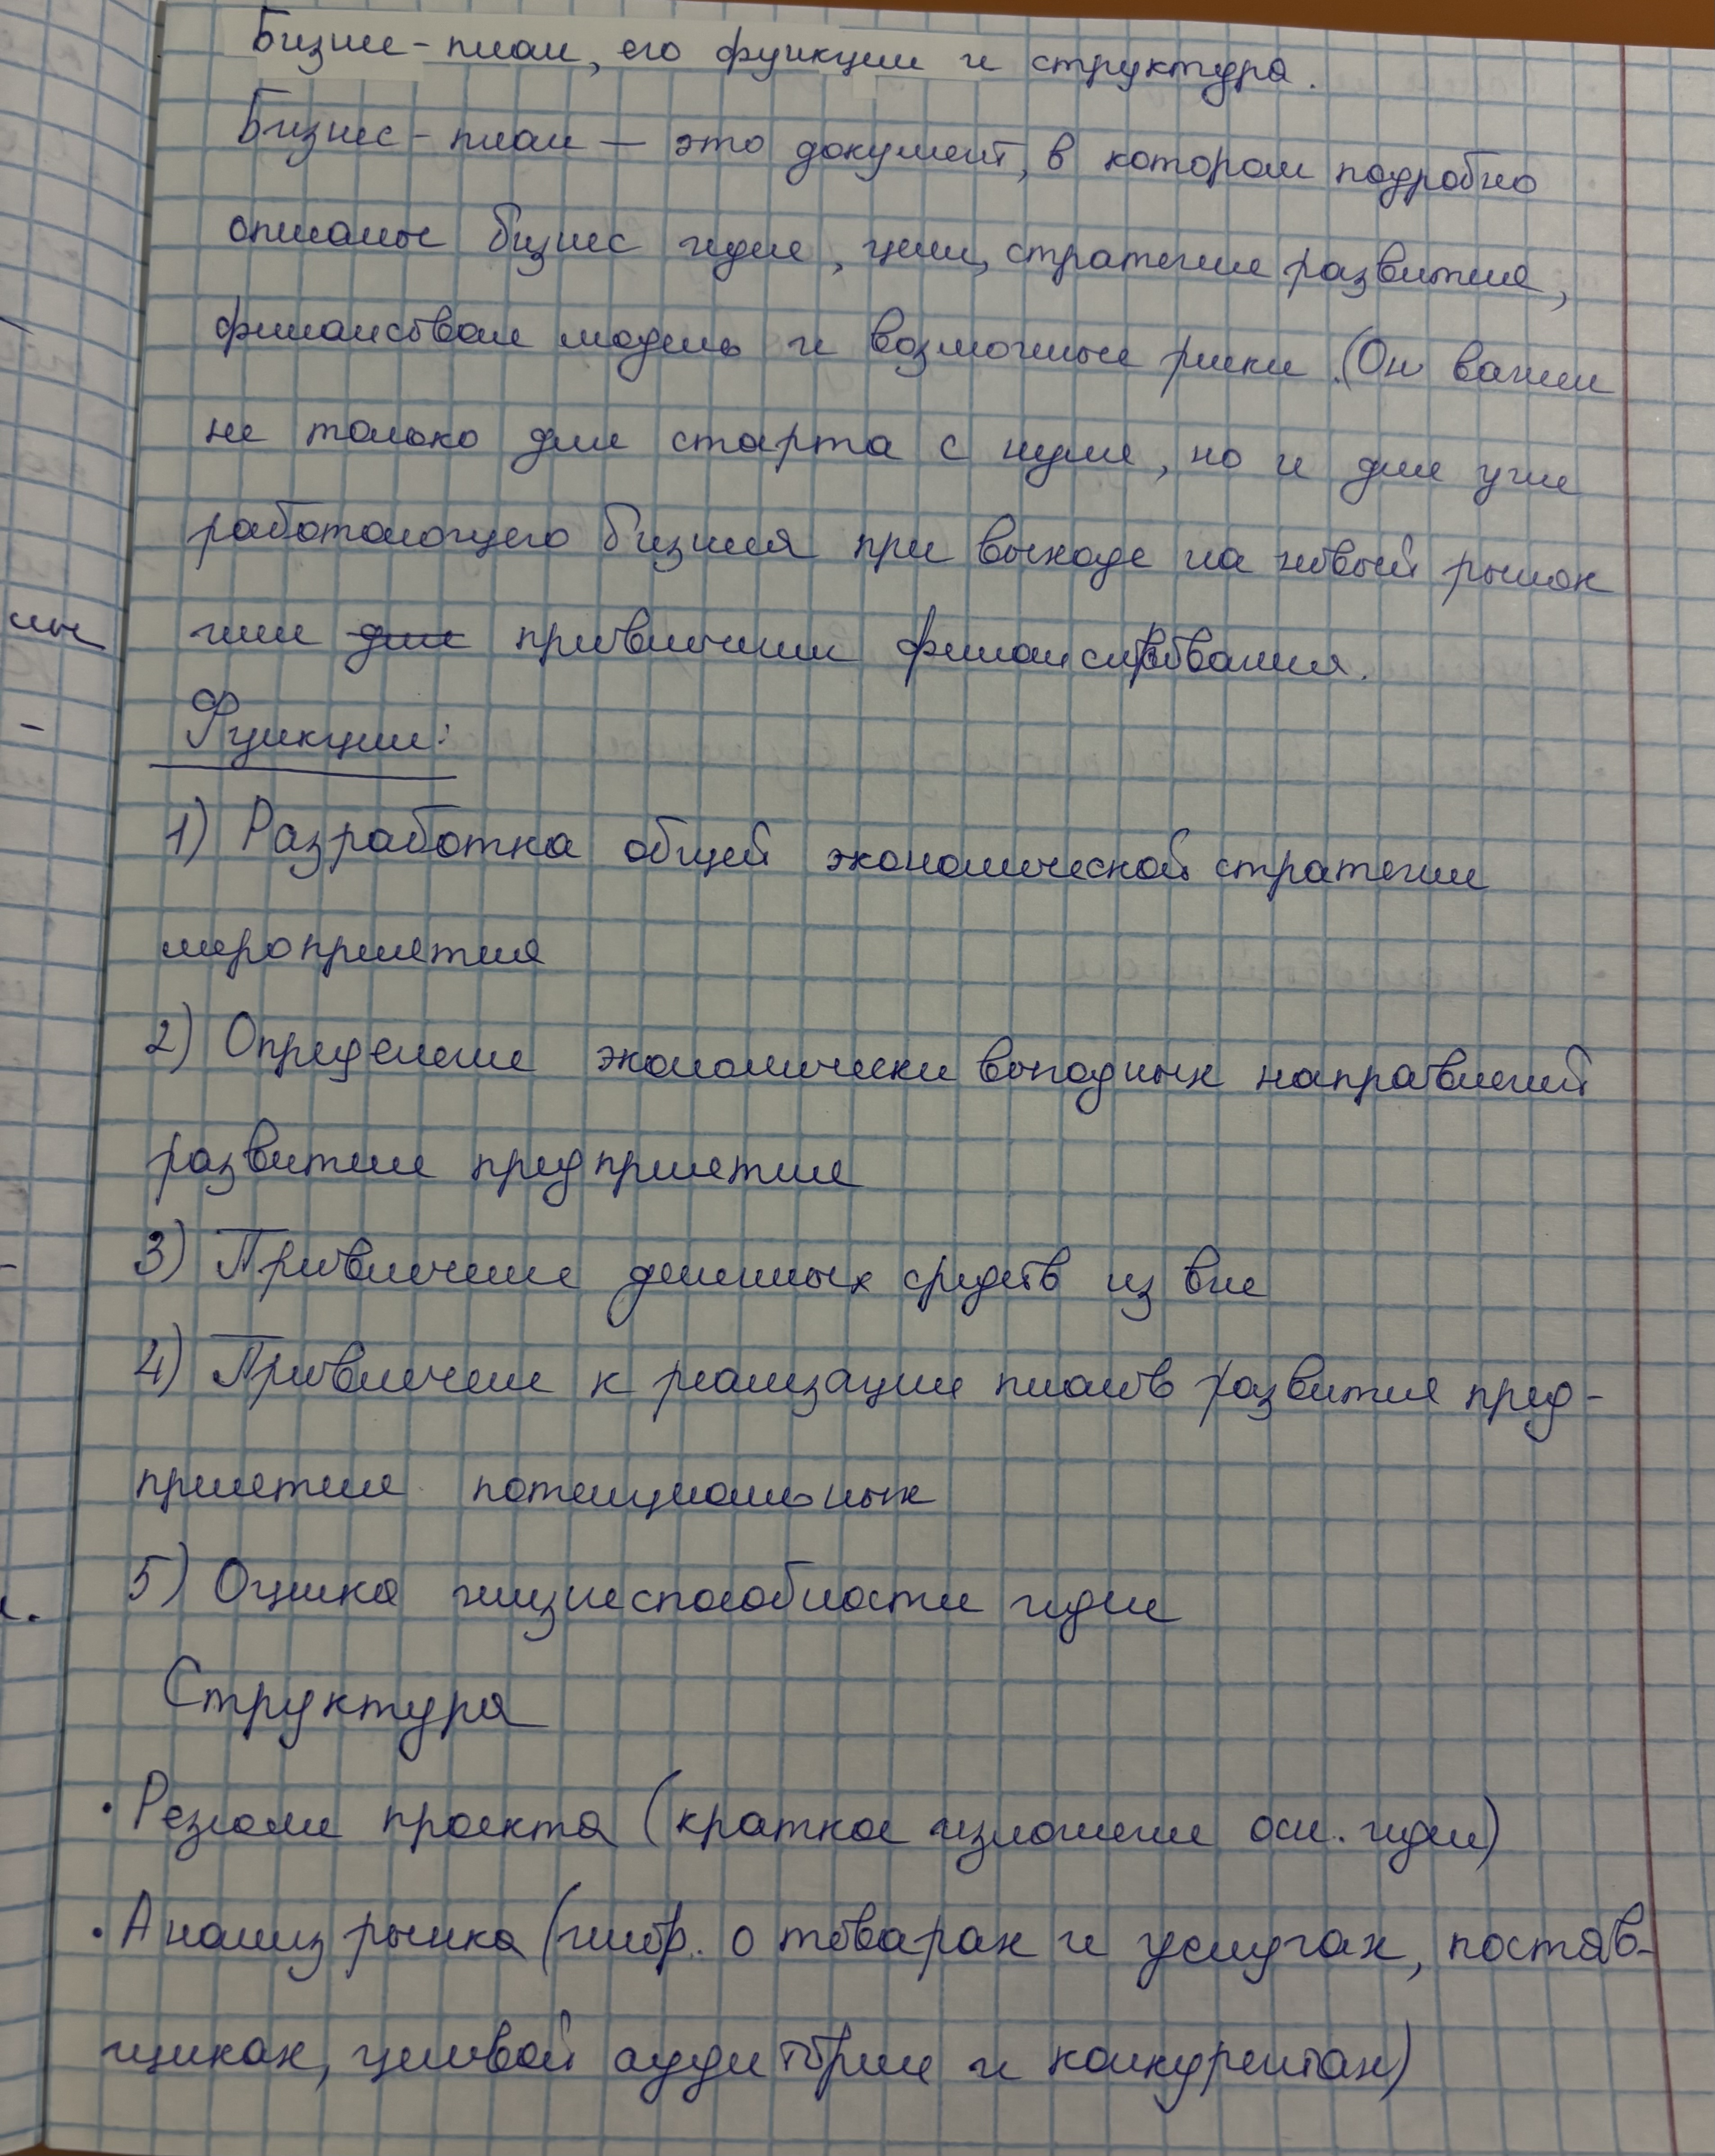 Бизнес-план, его функции и структура.
Бизнес-план — это документ, в котором подробно
описаны бизнес идея, цели, стратегия развития,
финансовая модель и возможные риски. (Он важен
не только для старта с нуля, но и для уже
работающего бизнеся при выходе на новый рынок
или для привлечении финансирования.
ны
Функции:
-
1) Разработка общей экономической стратегии
мероприятия
2) Определение экономически выгодных направлений
развития предприятия
3) Привлечение денежных средств из вне
-
4) Привлечение к реализации планов развития пред-
приятия потенциальных
5) Оценка жизнеспособности идеи
Структура
• Резюме проекта (краткое изложение осн. идеи)
• Анализ рынка (инф. о товарах и услугах, постав-
щиках, целевой аудитории и конкурентах)